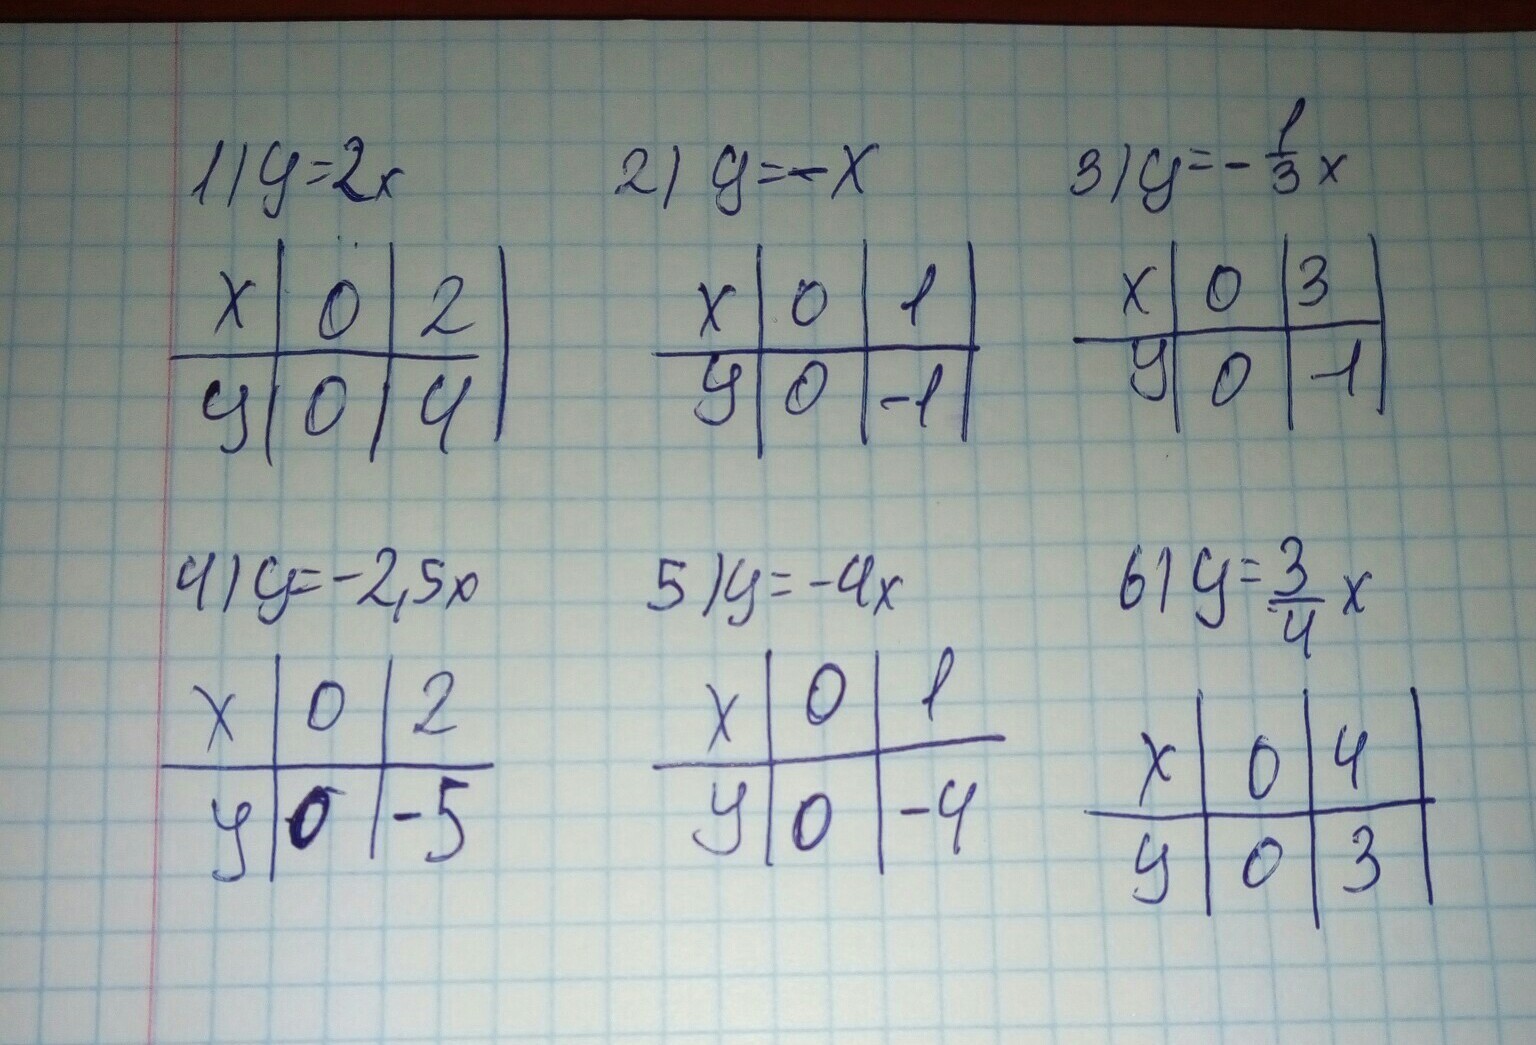 1) y=2x 2) y=-x 3) y=-1/3 x
x 0 2 x 0 1 x 0 3
y 0 4 y 0 -1 y 0 -1
4) y=-2,5x 5) y=-4x 6) y=3/4 x
x 0 2 x 0 1 x 0 4
y 0 -5 y 0 -4 y 0 3